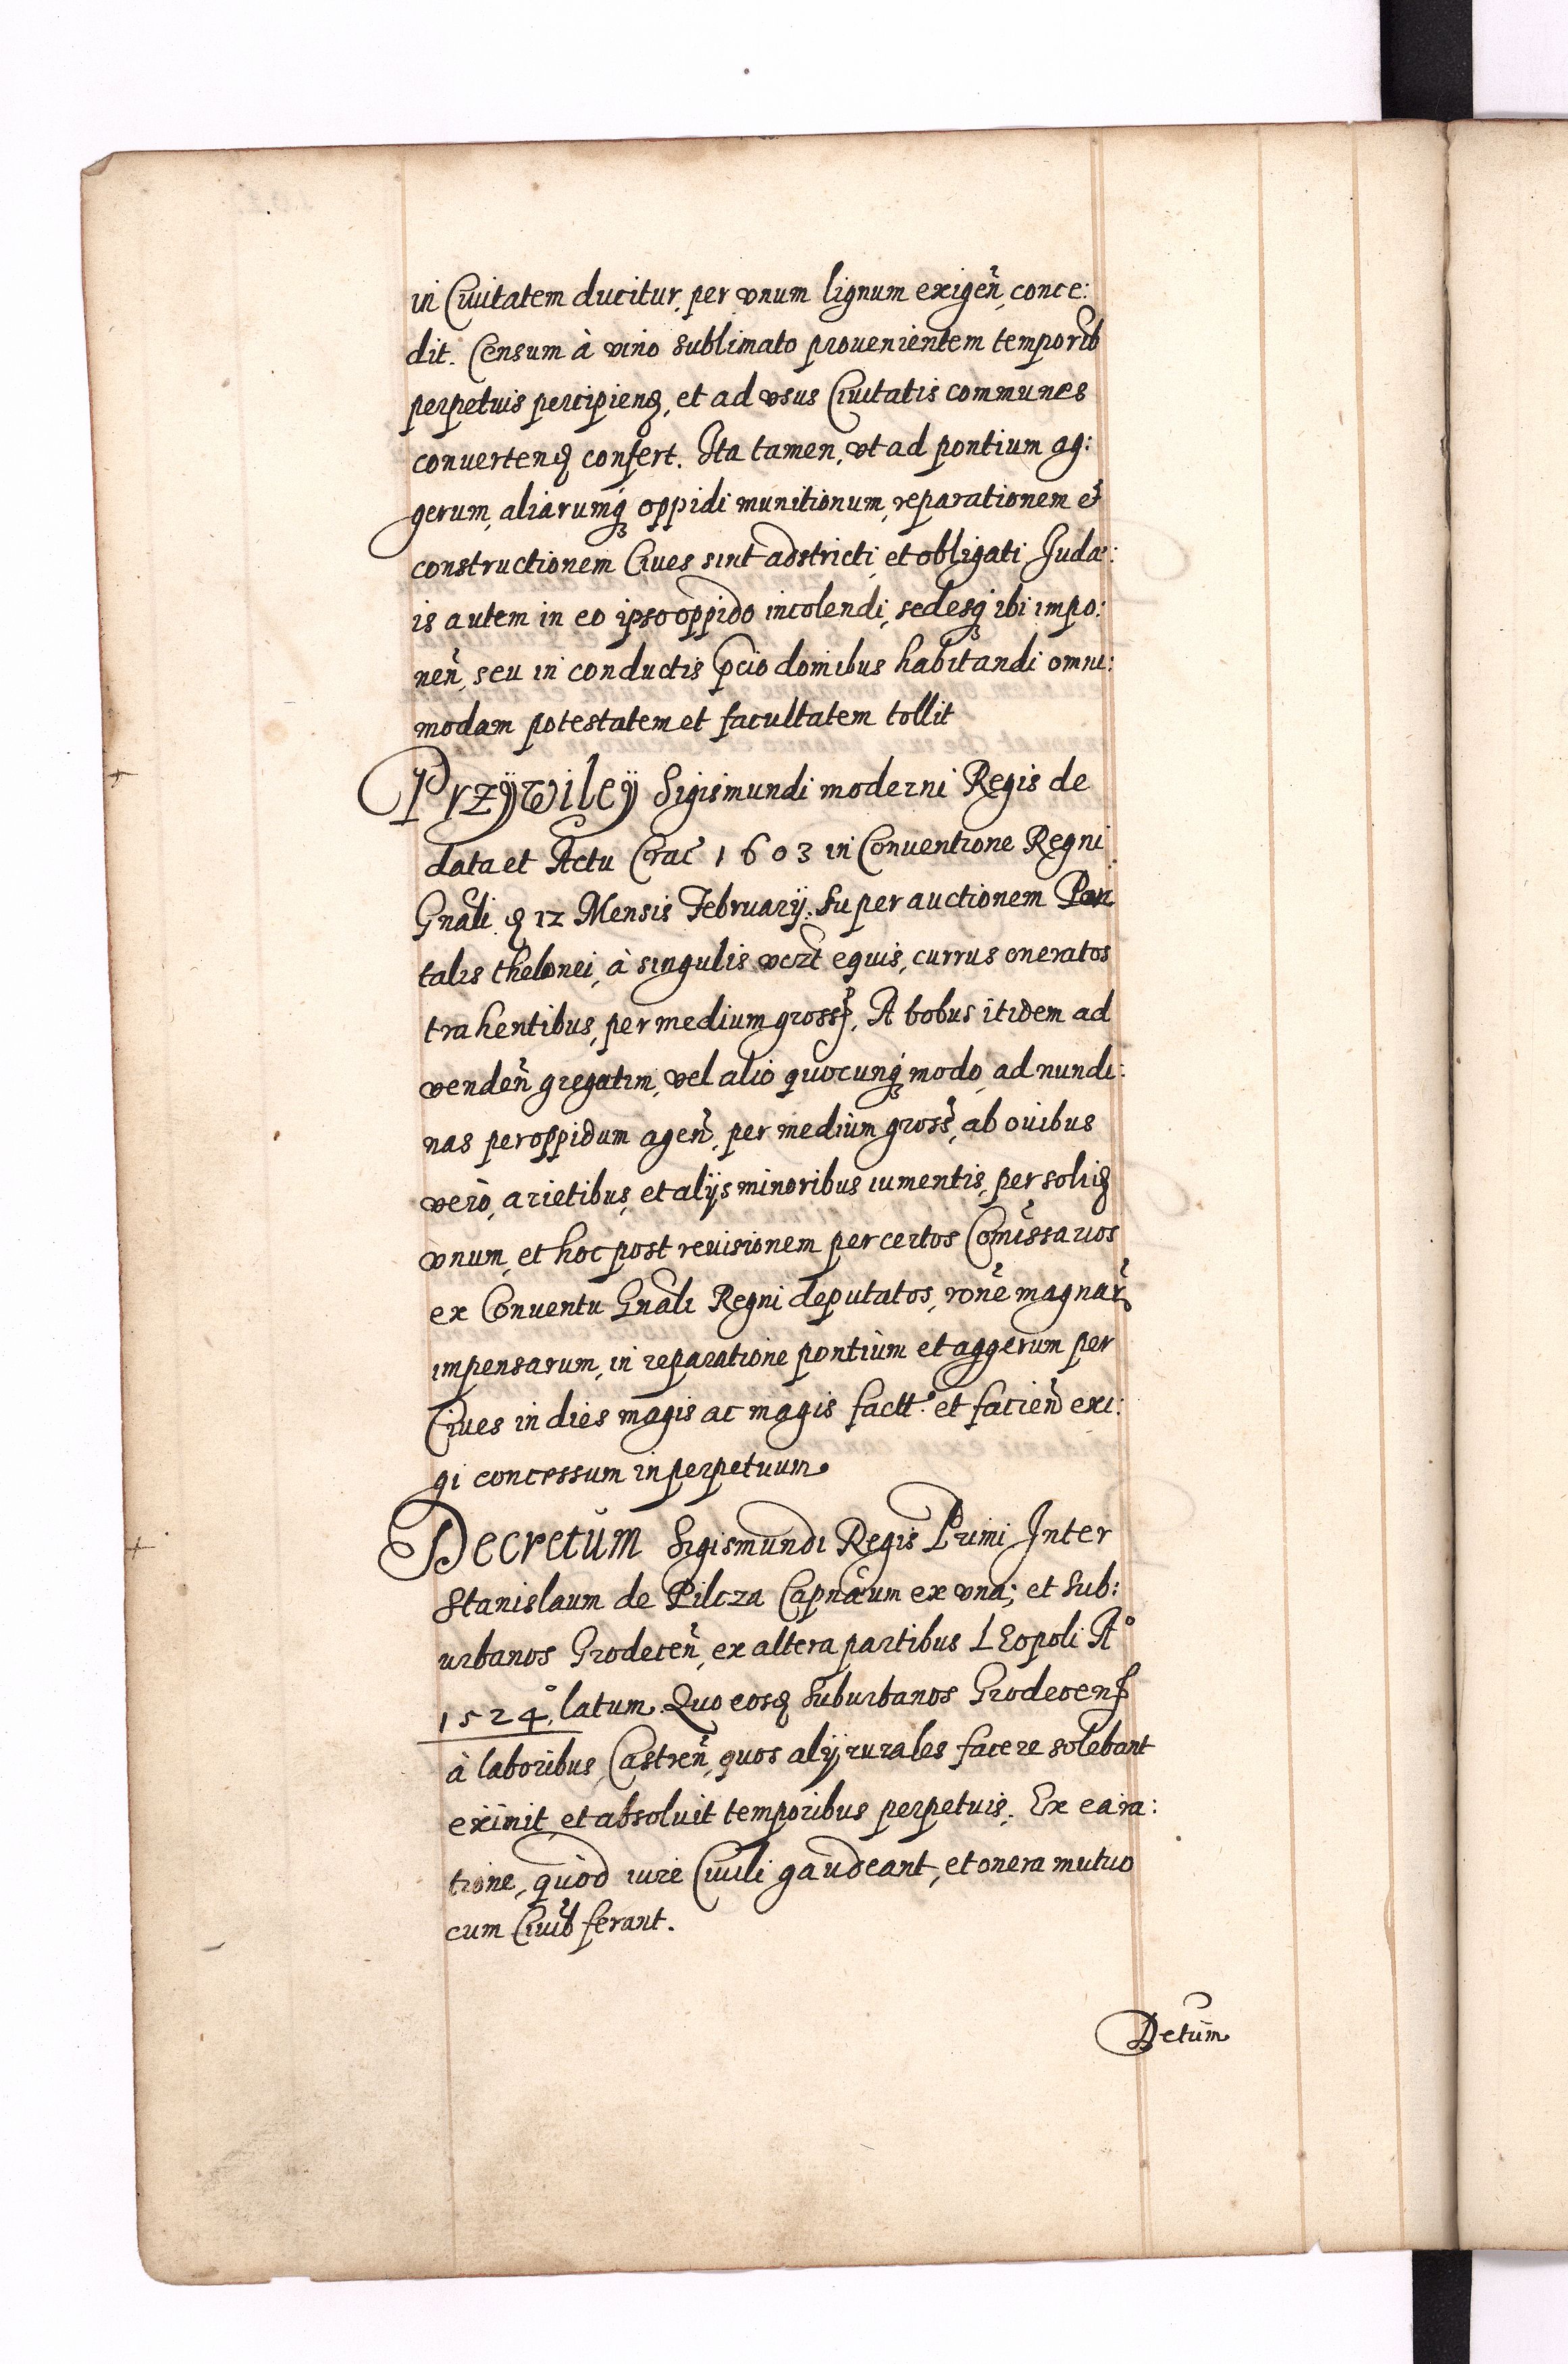 in Ciuitatem ducitur, per vnum lignum exigeñ, conce:
dit. Censum à vino sublimato prouenientem temporib
perpetuis percipiend, et ad vsus Ciuitatis communes
conuertend confert. Ita tamen, vt ad pontium ag:
gerum, aliarumq oppidi munitionum, reparationem et
constructionem Ciues sint adstricti, et obligati Iudæ:
is autem in eo ipso oppido incolendi, sedesq ibi impo:
neñ, seu in conductis pcio domibus habitandi omni:
modam potestatem et facultatem tollit
Przÿwileÿ Sigismundi moderni Regis de
data et Actu Crac 1603 in Conuentione Regni
Gnali d 12 Mensis February. Super auctionem Pon
talis thelonei, à singulis vezt equis, currus oneratos
trahentibus, per medium gross, A bobus itidem ad
vendeñ gregatim, vel alio quocunq modo, ad nundi:
nas per oppidum ageñ, per medium gross, ab ouibus
vero, arietibus, et alijs minoribus iumentis, per solid
vnum, et hoc post reuisionem per certos Comissarios
ex Conuentu Gnali Regni deputatos, rone magnar
impensarum, in reparatione pontium et aggerum per
Ciues in dies magis ac magis factt. et facien exi:
gi concessum in perpetuum.
Decretum Sigismundi Regis Primi Inter
Stanislaum de Pilcza Capnæum ex vna; et Sub:
urbanos Grodeceñ, ex altera partibus LEopoli A°
1524°. latum. Quo eosd Suburbanos Grodecens
à laboribus, Castreñ, quos alij rurales facere solebant
eximit, et absoluit temporibus perpetuis. Ex ea ra:
tione, quòd iure Ciuili gaudeant, et onera mutuo
cum Ciuib ferant.
Detum